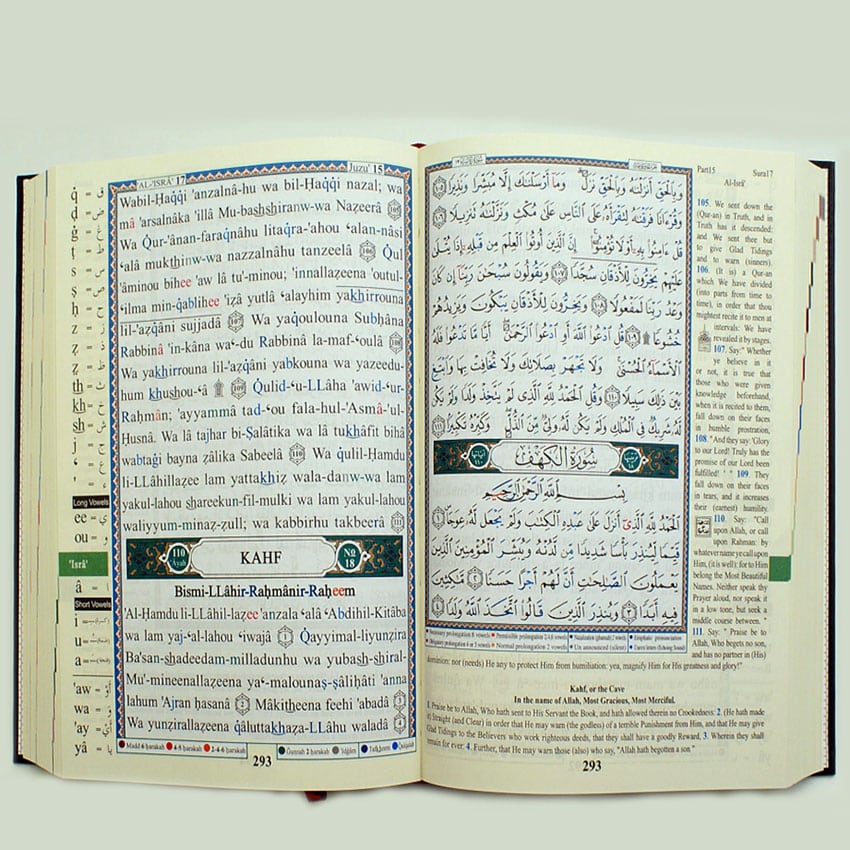 AL-'ISRÂ' 17 Juzu' 15
Wabil-Ḥaq̇q̇i 'anzalnâ-hu wa bil-Ḥaq̇q̇i nazal; wa
mâ 'arsalnâka 'illâ Mu-bashshiranw-wa Naẓeerâ 105
Wa Q̇ur-'ânan-faraq̇nâhu litaq̇ra-'ahou ʻalan-nâsi
ʻalâ mukthinw-wa nazzalnâhu tanzeelâ 106 Q̇ul
'âminou bihee 'aw lâ tu'-minou; 'innallaẓeena 'outul-
ʻilma min-q̇ablihee 'iẓâ yutlâ ʻalayhim yakhirrouna
lil-'aẓq̇âni sujjadâ 107 Wa yaq̇oulouna Subḥâna
Rabbinâ 'in-kâna waʻ-du Rabbinâ la-maf-ʻoulâ 108
Wa yakhirrouna lil-'aẓq̇âni yabkouna wa yazeedu-
hum khushou-ʻâ 109 Q̇ulid-ʻu-LLâha 'awid-ʻur-
Raḥmân; 'ayyammâ tad-ʻou fala-hul-'Asmâ-'ul-
Ḥusnâ. Wa lâ tajhar bi-Ṣalâtika wa lâ tukhâfit bihâ
wabtaġi bayna ẓâlika Sabeelâ 110 Wa q̇ulil-Ḥamdu
li-LLâhillaẓee lam yattakhiẓ wala-danw-wa lam
yakul-lahou shareekun-fil-mulki wa lam yakul-lahou
waliyyum-minaẓ-ẓull; wa kabbirhu takbeerâ 111
110 Ayah KAHF No 18
Bismi-LLâhir-Raḥmânir-Raḥeem
'Al-Ḥamdu li-LLâhil-laẓee 'anzala ʻalâ ʻAbdihil-Kitâba
wa lam yaj-ʻal-lahou ʻiwajâ 1 Q̇ayyimal-liyunẓira
Ba'san-shadeedam-milladunhu wa yubash-shiral-
Mu'-mineenallaẓeena yaʻ-malounaṣ-ṣâliḥâti 'anna
lahum 'Ajran ḥasanâ 2 Mâkitheena feehi 'abadâ 3
Wa yunẓirallaẓeena q̇âluttakhaẓa-LLâhu waladâ 4
Madd 6 ḥarakah 4-5 ḥarakah 2-4-6 ḥarakah Ġunnah 2 ḥarakah 'Idġâm Tafkheem Q̇alq̇alah
293
q̇ = ق
ḍ = ض
ġ = غ
ṭ = ط
ṣ = ص
ḥ = ح
Long Vowels
ee =
ou =
'Isrâ'
â =
Short Vowels
i =
u =
a =
'aw =
wa =
'ay =
yâ =
وَبِالْحَقِّ أَنزَلْنَاهُ وَبِالْحَقِّ نَزَلَ وَمَا أَرْسَلْنَاكَ إِلَّا مُبَشِّرًا وَنَذِيرًا ١٠٥
وَقُرْآنًا فَرَقْنَاهُ لِتَقْرَأَهُ عَلَى النَّاسِ عَلَى مُكْثٍ وَنَزَّلْنَاهُ تَنزِيلًا ١٠٦
قُلْ ءَامِنُوا بِهِ أَوْ لَا تُؤْمِنُوا إِنَّ الَّذِينَ أُوتُوا الْعِلْمَ مِن قَبْلِهِ إِذَا يُتْلَى
عَلَيْهِمْ يَخِرُّونَ لِلْأَذْقَانِ سُجَّدًا ١٠٧ وَيَقُولُونَ سُبْحَانَ رَبِّنَا إِن كَانَ
وَعْدُ رَبِّنَا لَمَفْعُولًا ١٠٨ وَيَخِرُّونَ لِلْأَذْقَانِ يَبْكُونَ وَيَزِيدُهُمْ
خُشُوعًا ١٠٩ قُلِ ادْعُوا اللَّهَ أَوِ ادْعُوا الرَّحْمَٰنَ أَيًّا مَّا تَدْعُوا فَلَهُ
الْأَسْمَاءُ الْحُسْنَى وَلَا تَجْهَرْ بِصَلَاتِكَ وَلَا تُخَافِتْ بِهَا وَابْتَغِ
بَيْنَ ذَٰلِكَ سَبِيلًا ١١٠ وَقُلِ الْحَمْدُ لِلَّهِ الَّذِي لَمْ يَتَّخِذْ وَلَدًا وَلَمْ يَكُن
لَّهُ شَرِيكٌ فِي الْمُلْكِ وَلَمْ يَكُن لَّهُ وَلِيٌّ مِّنَ الذُّلِّ وَكَبِّرْهُ تَكْبِيرًا ١١١
سُورَةُ الْكَهْفِ
بِسْمِ اللَّهِ الرَّحْمَٰنِ الرَّحِيمِ
الْحَمْدُ لِلَّهِ الَّذِي أَنزَلَ عَلَى عَبْدِهِ الْكِتَابَ وَلَمْ يَجْعَل لَّهُ عِوَجًا ١
قَيِّمًا لِّيُنذِرَ بَأْسًا شَدِيدًا مِّن لَّدُنْهُ وَيُبَشِّرَ الْمُؤْمِنِينَ الَّذِينَ
يَعْمَلُونَ الصَّالِحَاتِ أَنَّ لَهُمْ أَجْرًا حَسَنًا ٢ مَّاكِثِينَ
فِيهِ أَبَدًا ٣ وَيُنذِرَ الَّذِينَ قَالُوا اتَّخَذَ اللَّهُ وَلَدًا ٤
Necessary prolongation 6 vowels Permissible prolongation 2,4,6 vowels Nazalization (ghunnah) 2 vowels Emphatic pronunciation
Obligatory prolongation 4 or 5 vowels Normal prolongation 2 vowels Un announced (silent) Unrest letters (Echoing Sound)
Part15 Sura17
Al-Isrâ'
105. We sent down the
(Qur-an) in Truth, and in
Truth has it descended:
and We sent thee but
to give Glad Tidings
and to warn (sinners).
106. (It is) a Qur-an
which We have divided
(into parts from time to
time), in order that thou
mightest recite it to men at
intervals: We have
revealed it by stages.
107. Say:" Whether
ye believe in it
or not, it is true that
those who were given
knowledge beforehand,
when it is recited to them,
fall down on their faces
in humble prostration,
108. "And they say: 'Glory
to our Lord! Truly has the
promise of our Lord been
fulfilled! ' " 109. They
fall down on their faces
in tears, and it increases
their (earnest) humility.
110. Say: "Call
upon Allah, or call
upon Rahman: by
whatever name ye call upon
Him, (it is well): for to Him
belong the Most Beautiful
Names. Neither speak thy
Prayer aloud, nor speak it
in a low tone, but seek a
middle course between. "
111. Say: " Praise be to
Allah, Who begets no son,
and has no partner in (His)
dominion: nor (needs) He any to protect Him from humiliation: yea, magnify Him for His greatness and glory!"
Kahf, or the Cave
In the name of Allah, Most Gracious, Most Merciful.
1. Praise be to Allah, Who hath sent to His Servant the Book, and hath allowed therein no Crookedness: 2. (He hath made
it) Straight (and Clear) in order that He may warn (the godless) of a terrible Punishment from Him, and that He may give
Glad Tidings to the Believers who work righteous deeds, that they shall have a goodly Reward, 3. Wherein they shall
remain for ever: 4. Further, that He may warn those (also) who say, "Allah hath begotten a son "
293